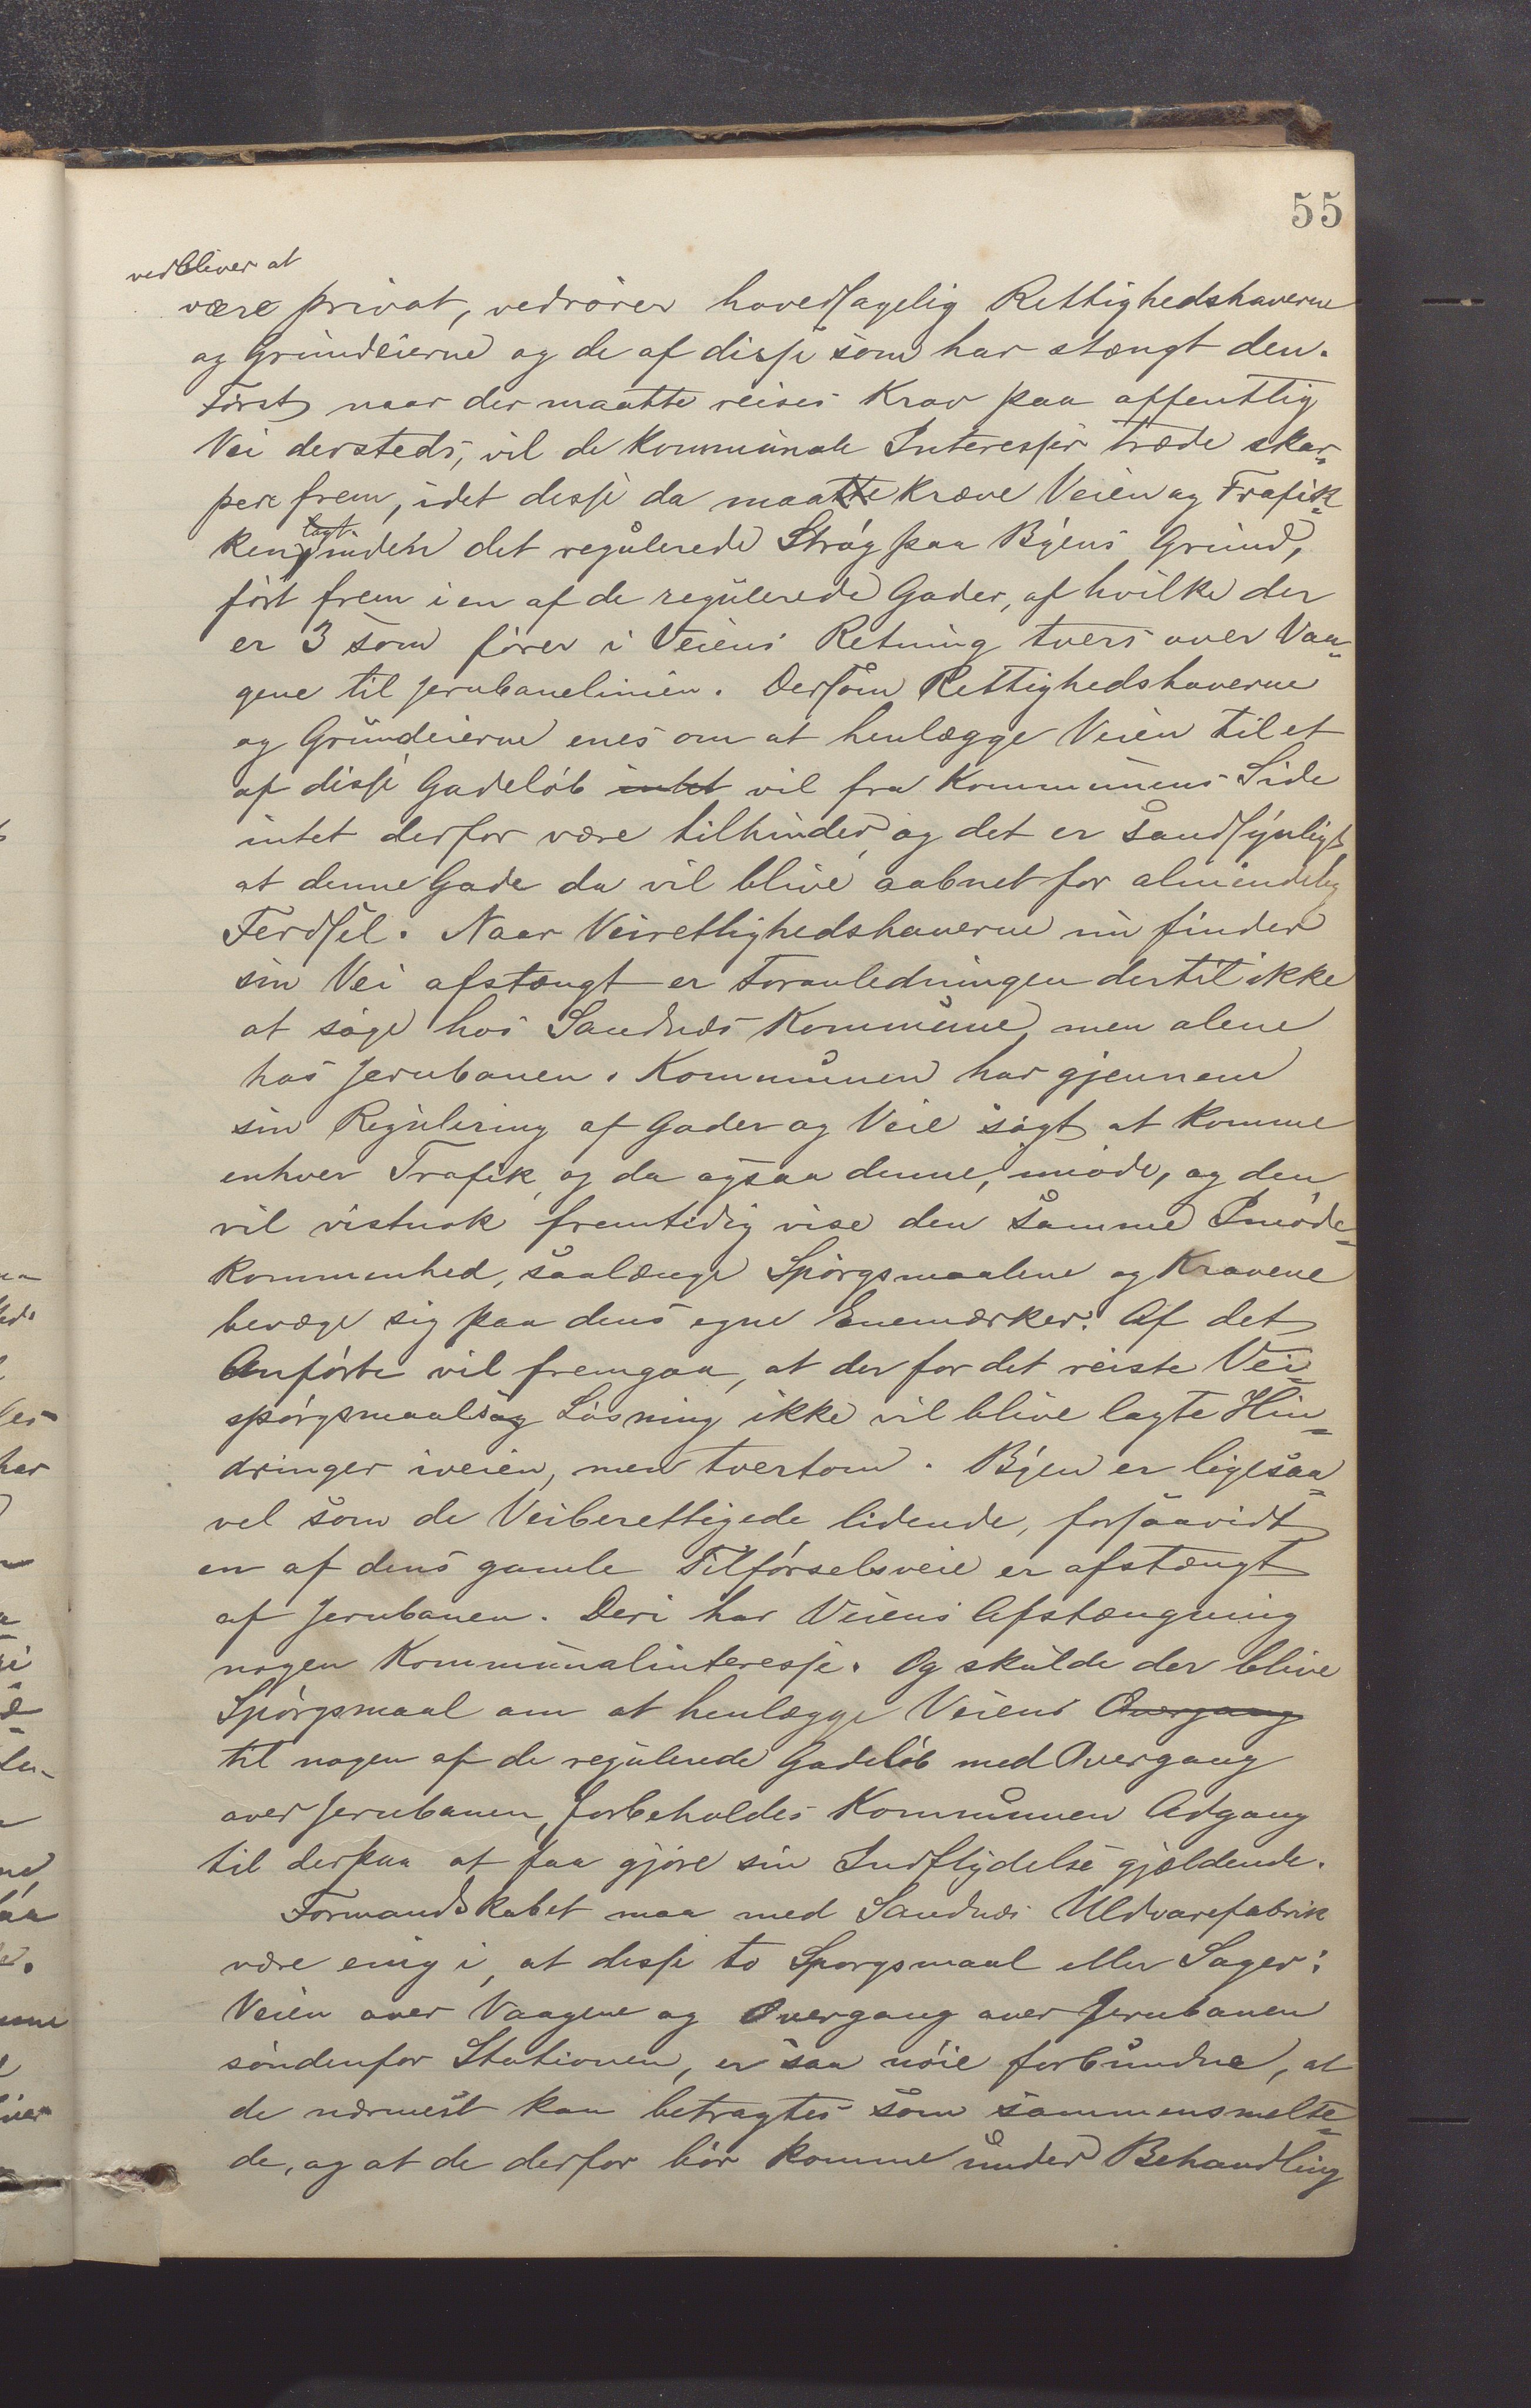 55
vedbliver at
være privat, vedrører hovedsagelig Rettighedshaverne
og Grundeierne og de af disse som har stængt den.
Først naar der maatte reises Krav paa offentlig
Vei dersteds, vil de Kommunale Interesser træde skar-
pere frem, idet disse da maatte kræve Veien og Trafik-
ken lagt inden det regulerede Strøg paa Byens Grund,
ført frem i en af de regulerede Gader, af hvilke der
er 3 som fører i Veiens Retning tvers over Vaa-
gene til Jernbanelinien. Dersom Rettighedshaverne
og Grundeierne enes om at henlægge Veien til et
af disse Gadeløb intet vil fra Kommunens Side
intet derfor være tilhinder, og det er sandsynligt,
at denne Gade da vil blive aabnet for almindelig
Ferdsel. Naar Veirettighedshaverne nu finder
sin Vei afstængt er Foranledningen dertil ikke
at søge hos Sandnes Kommune, men alene
hos Jernbanen. Kommunen har gjennem
sin Regulering af Gader og Veie søgt at komme
enhver Trafik, og da ogsaa denne, imøde, og den
vil vistnok fremtidig vise den samme Imøde-
kommenhed, saalænge Spørgsmaalene og Kravene
bevæge sig paa dens egne Enemærker. Af det
Anførte vil fremgaa, at der for det reiste Vei-
spørgsmaals Løsning ikke vil blive lagte Hin-
dringer iveien, men tvertom. Byen er ligesaa-
vel som de Veiberettigede lidende, forsaavidt
en af dens gamle Tilførselsveie er afstængt
af Jernbanen. Deri har Veiens Afstængning
nogen Kommunalinteresse. Og skulde der blive
Spørgsmaal om at henlægge Veiens Overgang
til nogen af de regulerede Gadeløb med Overgang
over Jernbanen, forbeholdes Kommunen Adgang
til derpaa at faa gjøre sin Indflydelse gjældende.
Formandskabet maa med Sandnes Uldvarefabrik
være enig i, at disse to Spørgsmaal eller Sager:
Veien over Vaagene og Overgang over Jernbanen
søndenfor Stationen, er saa nøie forbundne, at
de nærmest kan betragtes som sammensmelte-
de, og at de derfor bør komme under Behandling